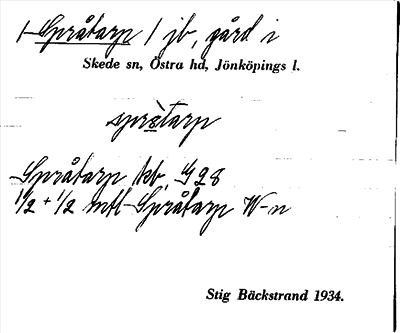 Språtarp / jb, gård i
Skede sn, Östra hd, Jönköpings l.
språ̀tarp
Språtarp kb, 1928
1/2 + 1/2 mtl Språtarp W-n
Stig Bäckstrand 1934.